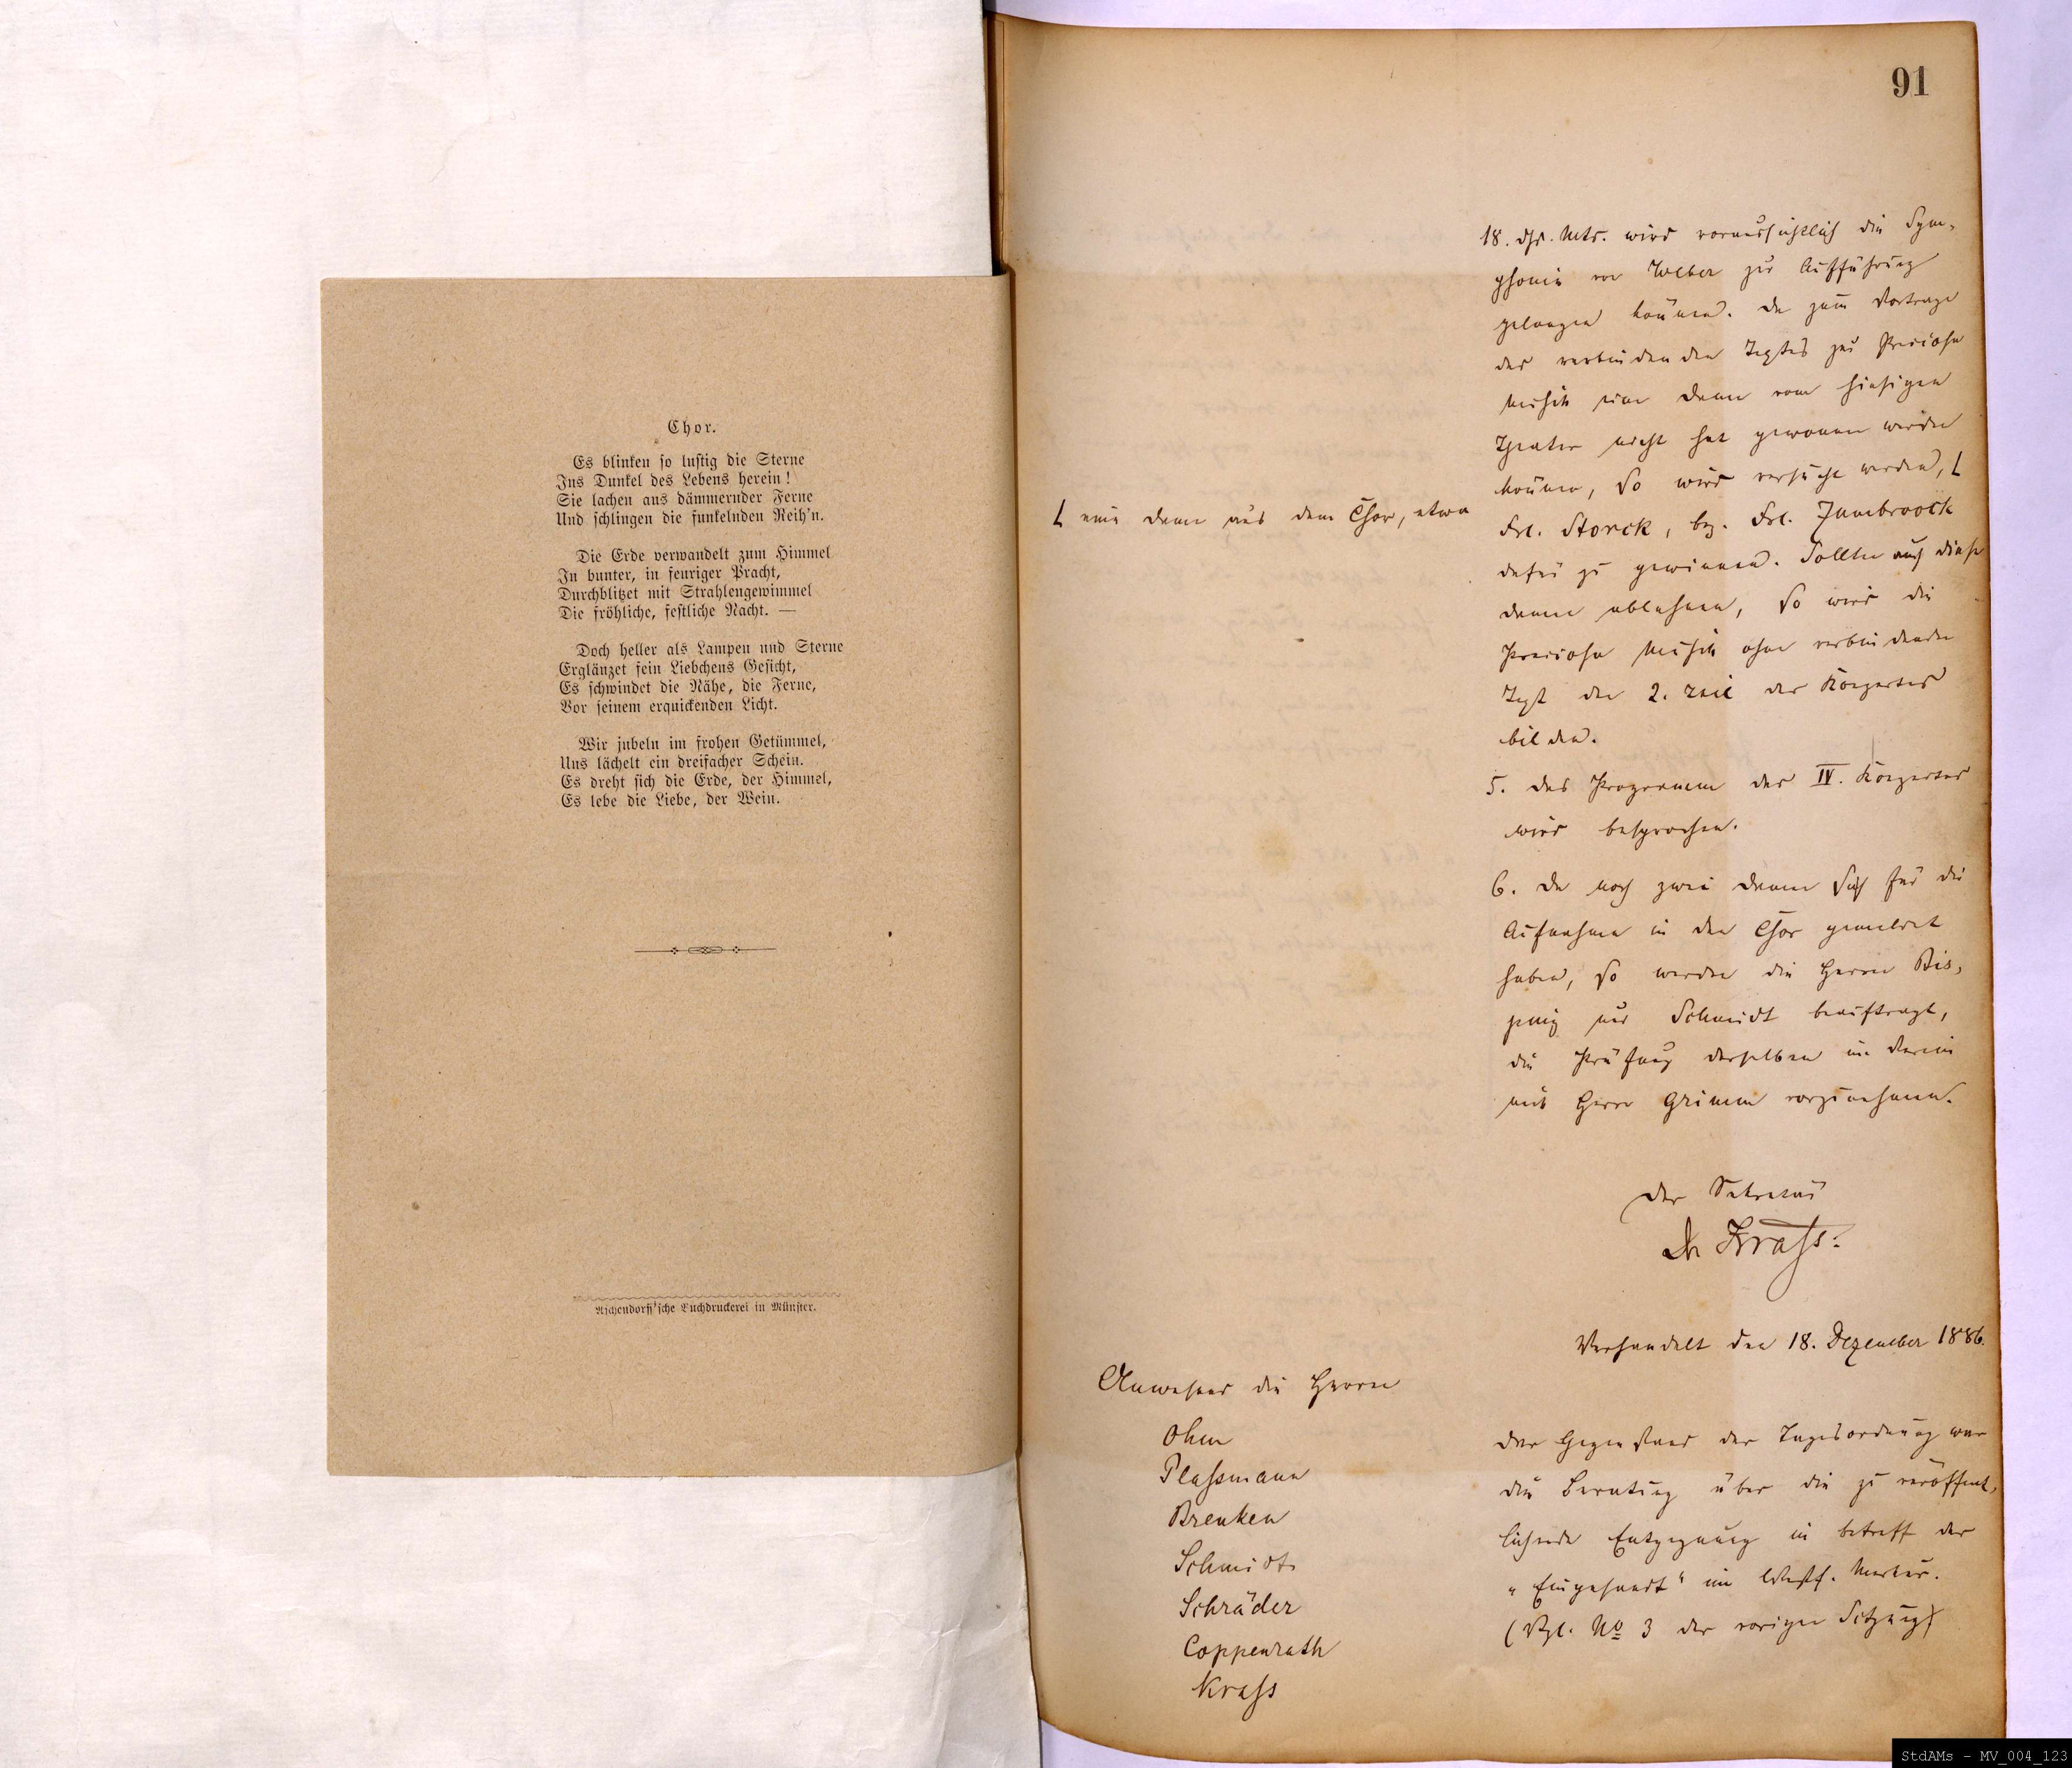 Chor.
Es blinken so lustig die Sterne
Ins Dunkel des Lebens herein!
Sie lachen aus dämmernder Ferne
Und schlingen die funkelnden Reih'n.
Die Erde verwandelt zum Himmel
In bunter, in feuriger Pracht,
Durchblitzet mit Strahlengewimmel
Die fröhliche, festliche Nacht. —
Doch heller als Lampen und Sterne
Erglänzet fein Liebchens Gesicht,
Es schwindet die Nähe, die Ferne,
Vor seinem erquickenden Licht.
Wir jubeln im frohen Getümmel,
Uns lächelt ein dreifacher Schein.
Es dreht sich die Erde, der Himmel,
Es lebe die Liebe, der Wein.
Aschendorff'sche Buchdruckerei in Münster.
91
18. dss. Mts. wird voraussichtlich die Sym-
phonie von Weber zur Aufführung
gelangen können. Da zum Vortrage
des verbindenden Textes zur Preciosa
Musik eine Dame vom hiesigen
Theater nicht hat gewonnen werden
können, so wird versucht werden, L
L eine Dame aus dem Chor, etwa
Frl. Storck, bez. Frl. Zumbroock
dafür zu gewinnen. Sollten auch diese
Damen ablehnen, so wird die
Preciosa Musik ohne verbindenden
Text den 2. Teil des Konzertes
bilden.
5. Das Programm des IV. Konzertes
wird besprochen.
6. Da noch zwei Damen sich für die
Aufnahme in den Chor gemeldet
haben, so werden die Herren Bis-
ping und Schmidt beauftragt,
die Prüfung derselben im Verein
mit Herrn Grimm vorzunehmen.
Der Sekretär
Dr Krass.
Verhandelt den 18. Dezember 1886.
Anwesend die Herren
Ohm
Plassmann
Brenken
Schmidt
Schräder
Coppenrath
Krass
Der Gegenstand der Tagesordnung war
die Beratung über die zu veröffent-
lichende Entgegnung in betreff des
"Eingesandt" im Westf. Merkur.
(Vgl. No 3 der vorigen Sitzung)
StdAMs - MV_004_123